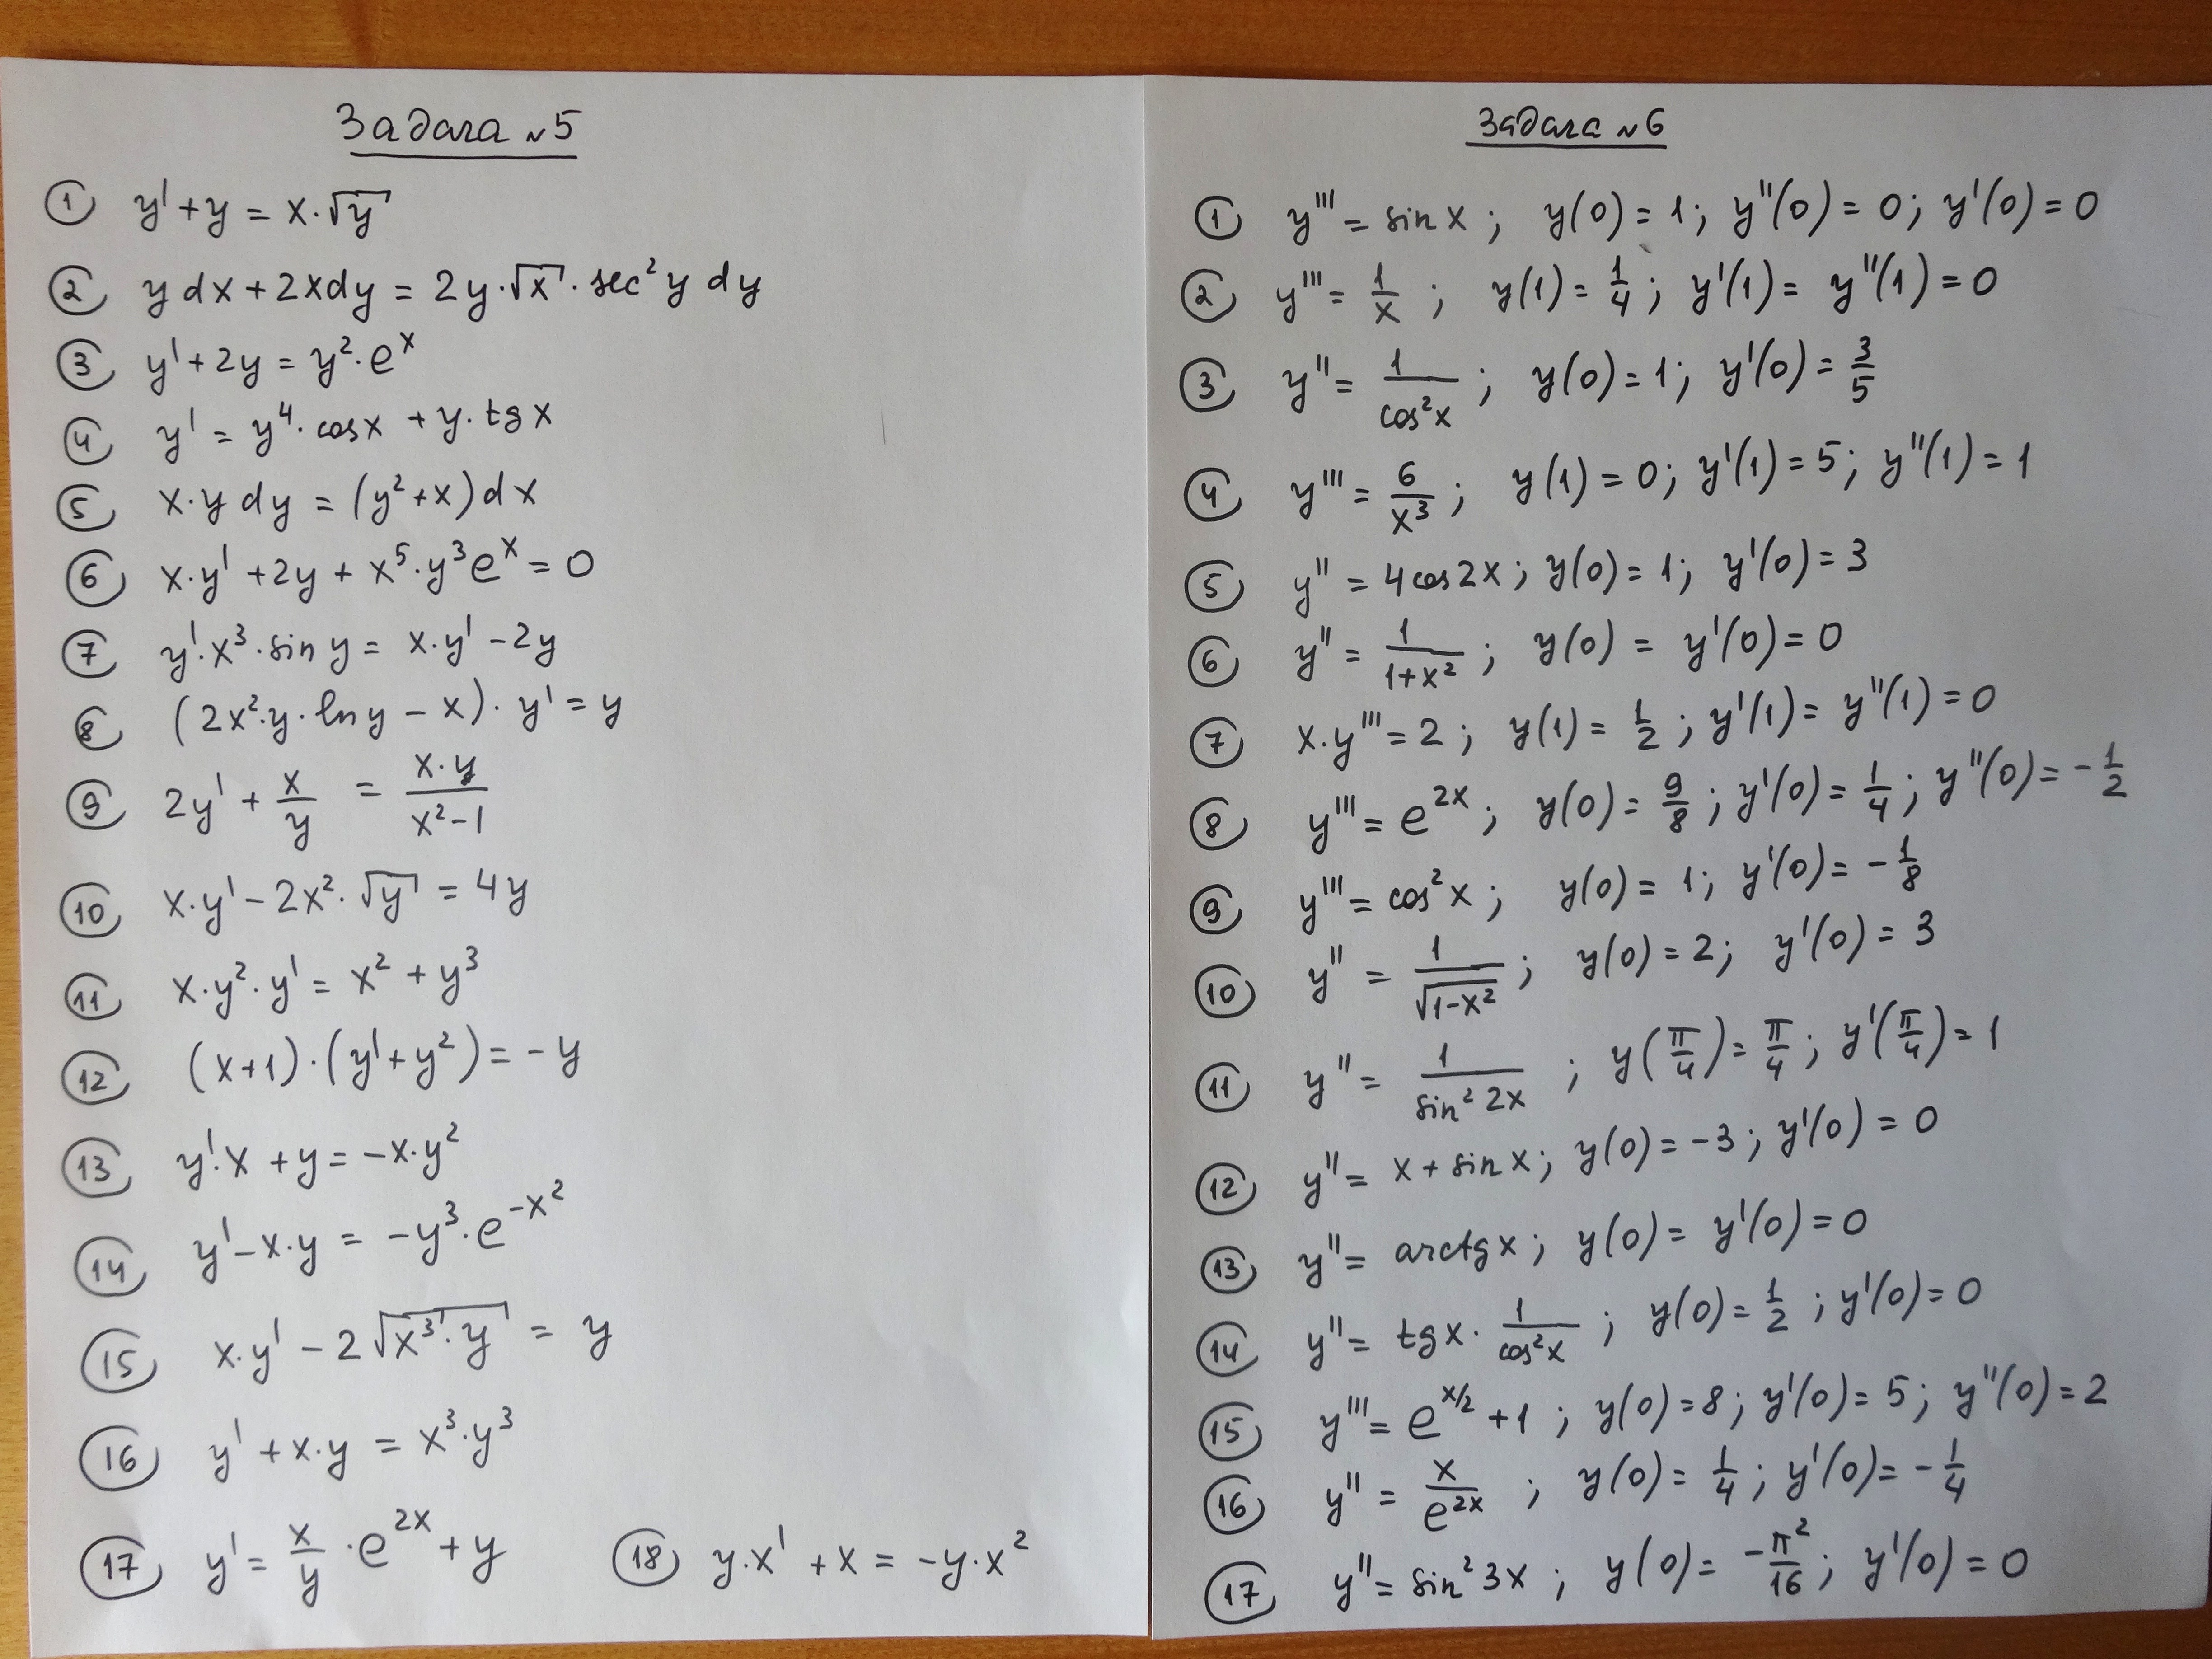 Задача №5
① y' + y = x·√y
② y dx + 2x dy = 2y·√x · sec² y dy
③ y' + 2y = y²·eˣ
④ y' = y⁴·cos x + y·tg x
⑤ x·y dy = (y² + x) dx
⑥ x·y' + 2y + x⁵·y³eˣ = 0
⑦ y'·x³·sin y = x·y' − 2y
⑧ (2x²·y·ln y − x)·y' = y
⑨ 2y' + x/y = x·y/(x²−1)
⑩ x·y' − 2x²·√y = 4y
⑪ x·y²·y' = x² + y³
⑫ (x+1)·(y' + y²) = −y
⑬ y'·x + y = −x·y²
⑭ y' − x·y = −y³·e^(−x²)
⑮ x·y' − 2√(x³·y) = y
⑯ y' + x·y = x³·y³
⑰ y' = x/y · e^(2x) + y
⑱ y·x' + x = −y·x²
Задача №6
① y''' = sin x ; y(0) = 1; y''(0) = 0; y'(0) = 0
② y''' = 1/x ; y(1) = 1/4 ; y'(1) = y''(1) = 0
③ y'' = 1/cos²x ; y(0) = 1; y'(0) = 3/5
④ y''' = 6/x³ ; y(1) = 0; y'(1) = 5; y''(1) = 1
⑤ y'' = 4cos2x ; y(0) = 1; y'(0) = 3
⑥ y'' = 1/(1+x²) ; y(0) = y'(0) = 0
⑦ x·y''' = 2 ; y(1) = 1/2 ; y'(1) = y''(1) = 0
⑧ y''' = e^(2x) ; y(0) = 9/8 ; y'(0) = 1/4 ; y''(0) = −1/2
⑨ y''' = cos²x ; y(0) = 1; y'(0) = −1/8
⑩ y'' = 1/√(1−x²) ; y(0) = 2; y'(0) = 3
⑪ y'' = 1/sin² 2x ; y(π/4) = π/4 ; y'(π/4) = 1
⑫ y'' = x + sin x ; y(0) = −3 ; y'(0) = 0
⑬ y'' = arctg x ; y(0) = y'(0) = 0
⑭ y'' = tg x · 1/cos²x ; y(0) = 1/2 ; y'(0) = 0
⑮ y''' = e^(x/2) + 1 ; y(0) = 8; y'(0) = 5; y''(0) = 2
⑯ y'' = x/e^(2x) ; y(0) = 1/4 ; y'(0) = −1/4
⑰ y'' = sin² 3x ; y(0) = −π²/16 ; y'(0) = 0